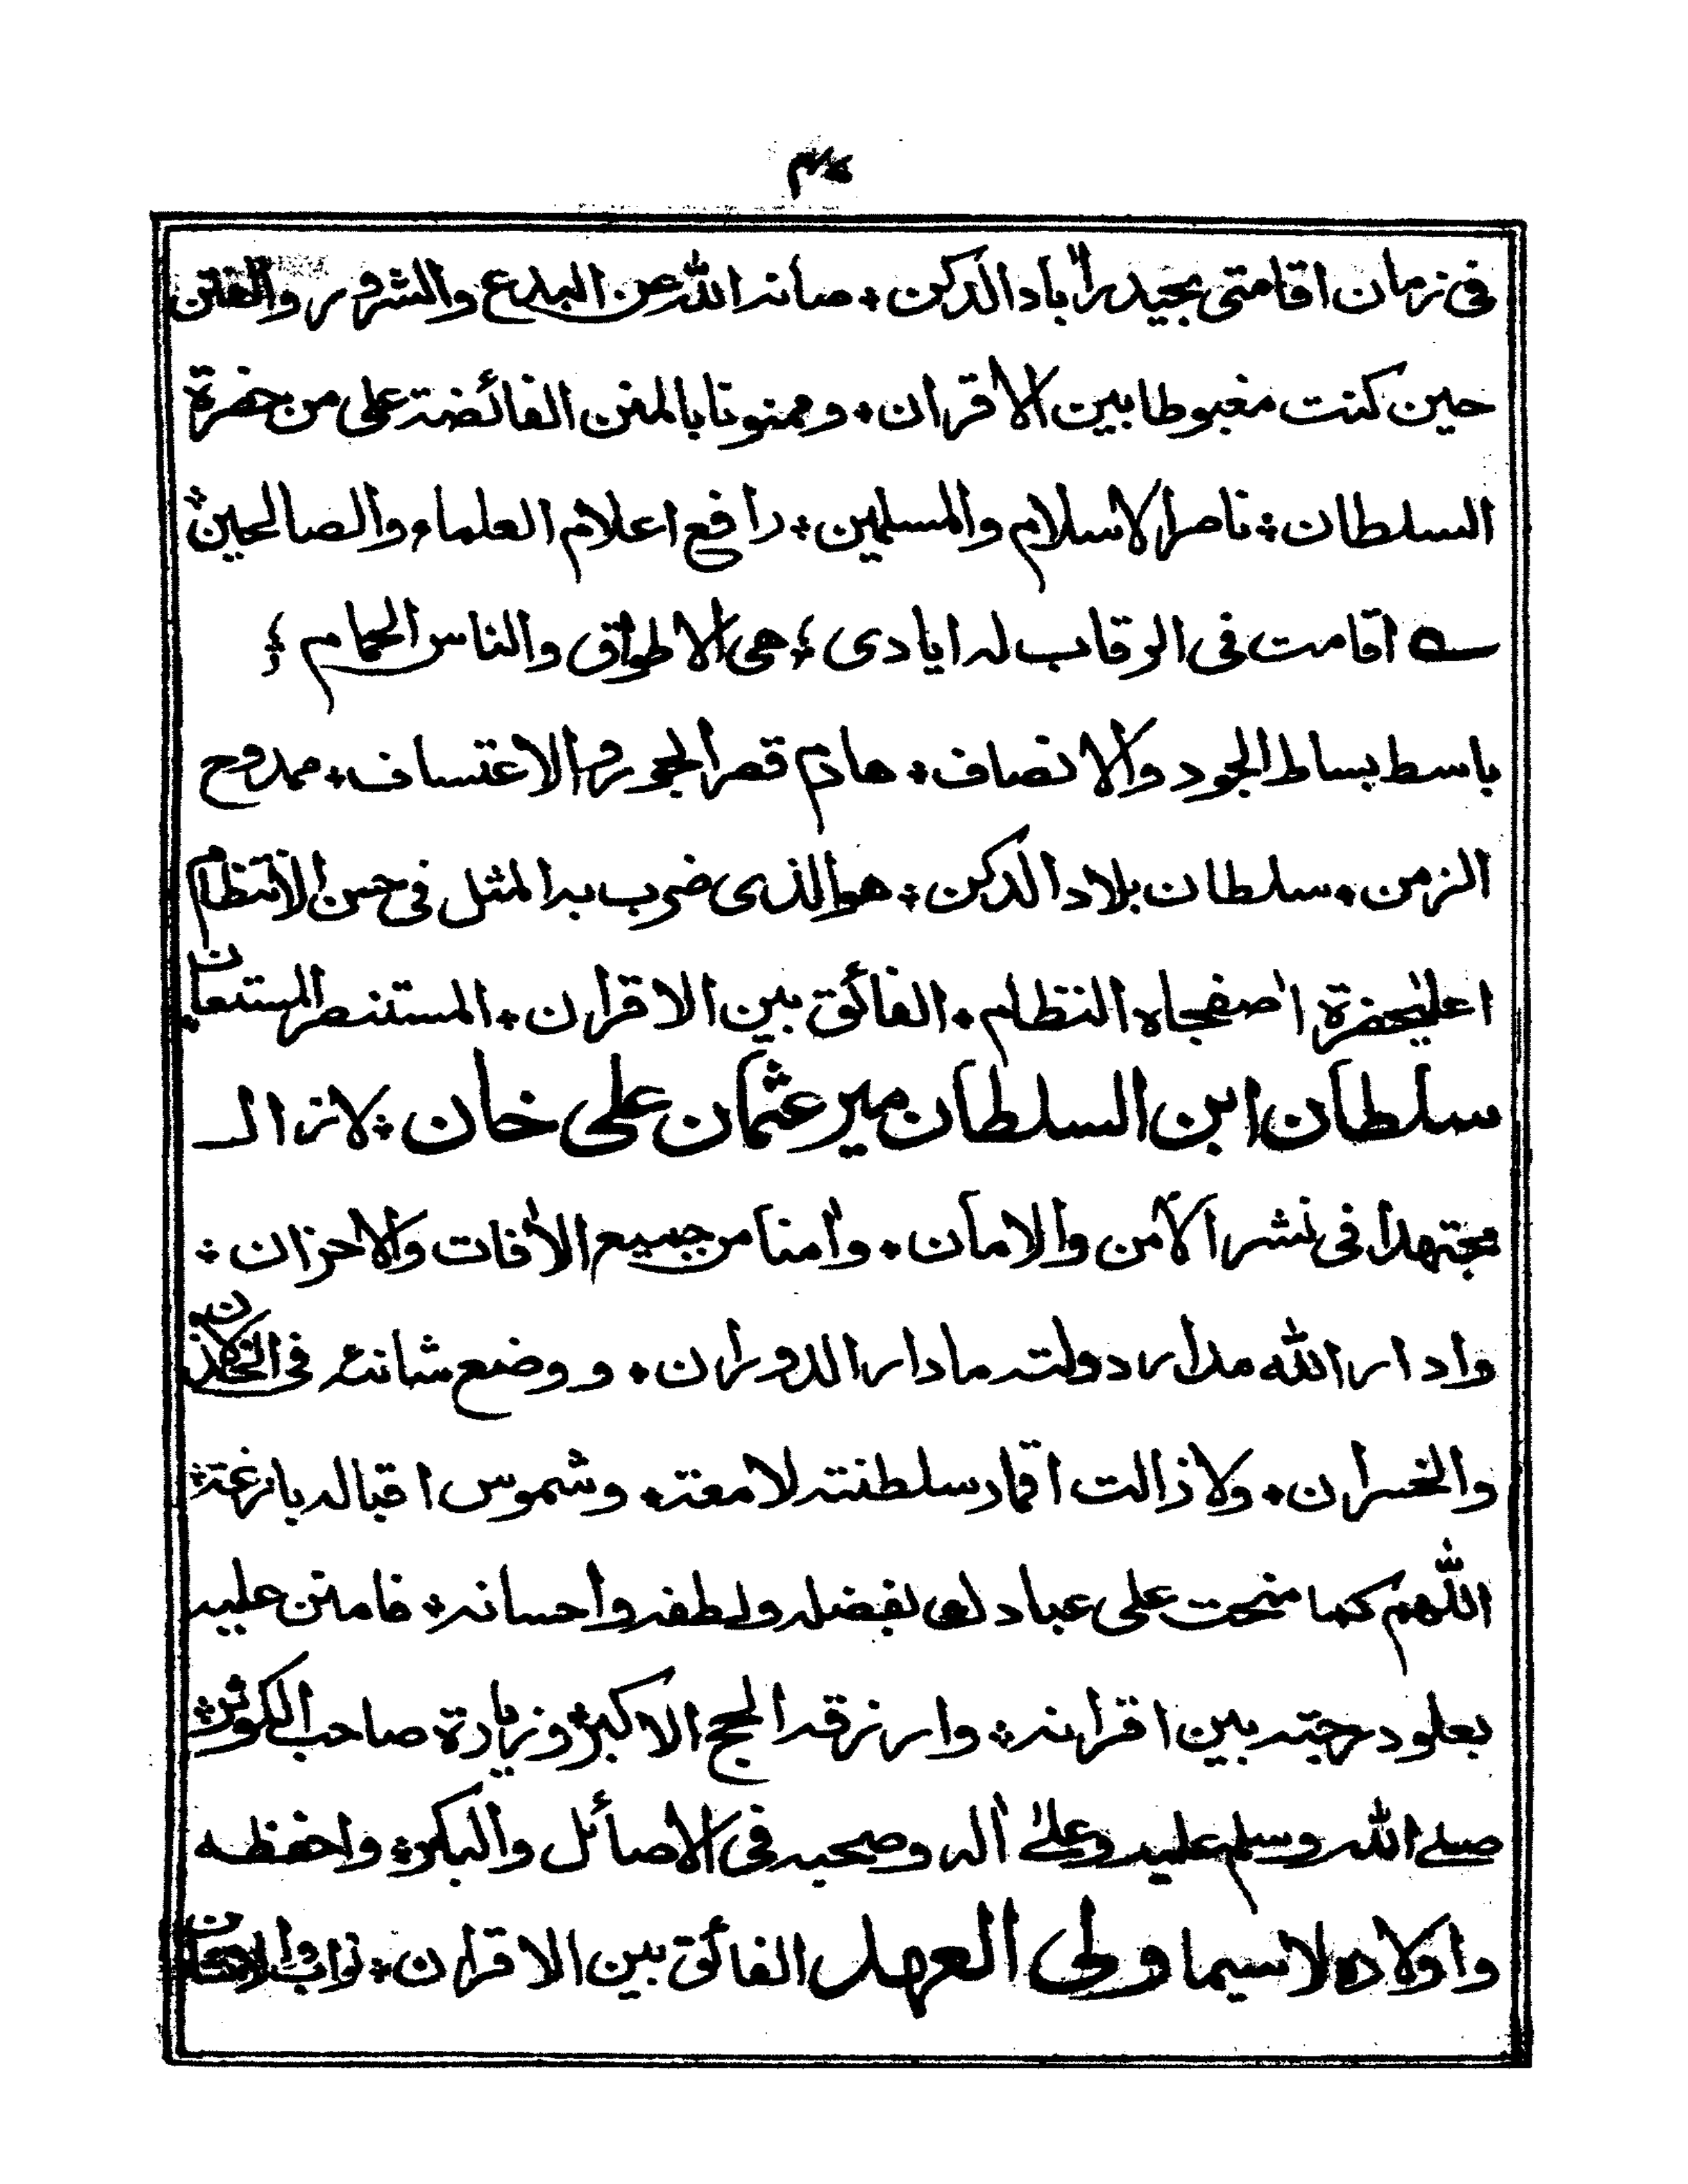 فی زمان اقامتی بحیدرآباد الدکن ۞ صانہ اللہ عن البدع والشرور والفتن
حین کنت مغبوطا بین الاقران ۞ وممنونا بالمنن الفائضۃ علی من حضرۃ
السلطان ۞ ناصر الاسلام والمسلمین ۞ رافع اعلام العلماء والصالحین ۞
؎ اقامت فی الرقاب لہ ایادی ؛ ھی الاطواق والناس الحمام ؛
باسط بساط الجود والانصاف ۞ ھادم قصر الجور والاعتساف ۞ ممدوح
الزمن ۞ سلطان بلاد الدکن ۞ ھو الذی ضرب بہ المثل فی حسن الانتظام
اعلیٰحضرۃ اٰصفجاہ النظام ۞ الفائق بین الاقران ۞ المستنصر المستعان
سلطان ابن السلطان میر عثمان علی خان ۞ لازال
مجتھدا فی نشر الامن والامان ۞ واٰمنا من جمیع الاٰفات والاحزان ۞
وادار اللہ مدار دولتہ مادار الدوران ۞ ووضع شانئہ فی الخذلان
والخسران ۞ ولازالت اقمار سلطنتہ لامعۃ ۞ وشموس اقبالہ بازغۃ ۞
اللھم کما منحت علی عبادک بفضلہ ولطفہ واحسانہ ۞ فامنن علیہ
بعلو درجتہ بین اقرانہ ۞ وارزقہ الحج الاکبر ۞ وزیارۃ صاحب الکوثر ۞
صلے اللہ وسلم علیہ وعلےٰ اٰلہ وصحبہ فی الاصائل والبکر ۞ واحفظہ
واولادہ لاسیما ولی العھد الفائق بین الاقران ۞ نواب